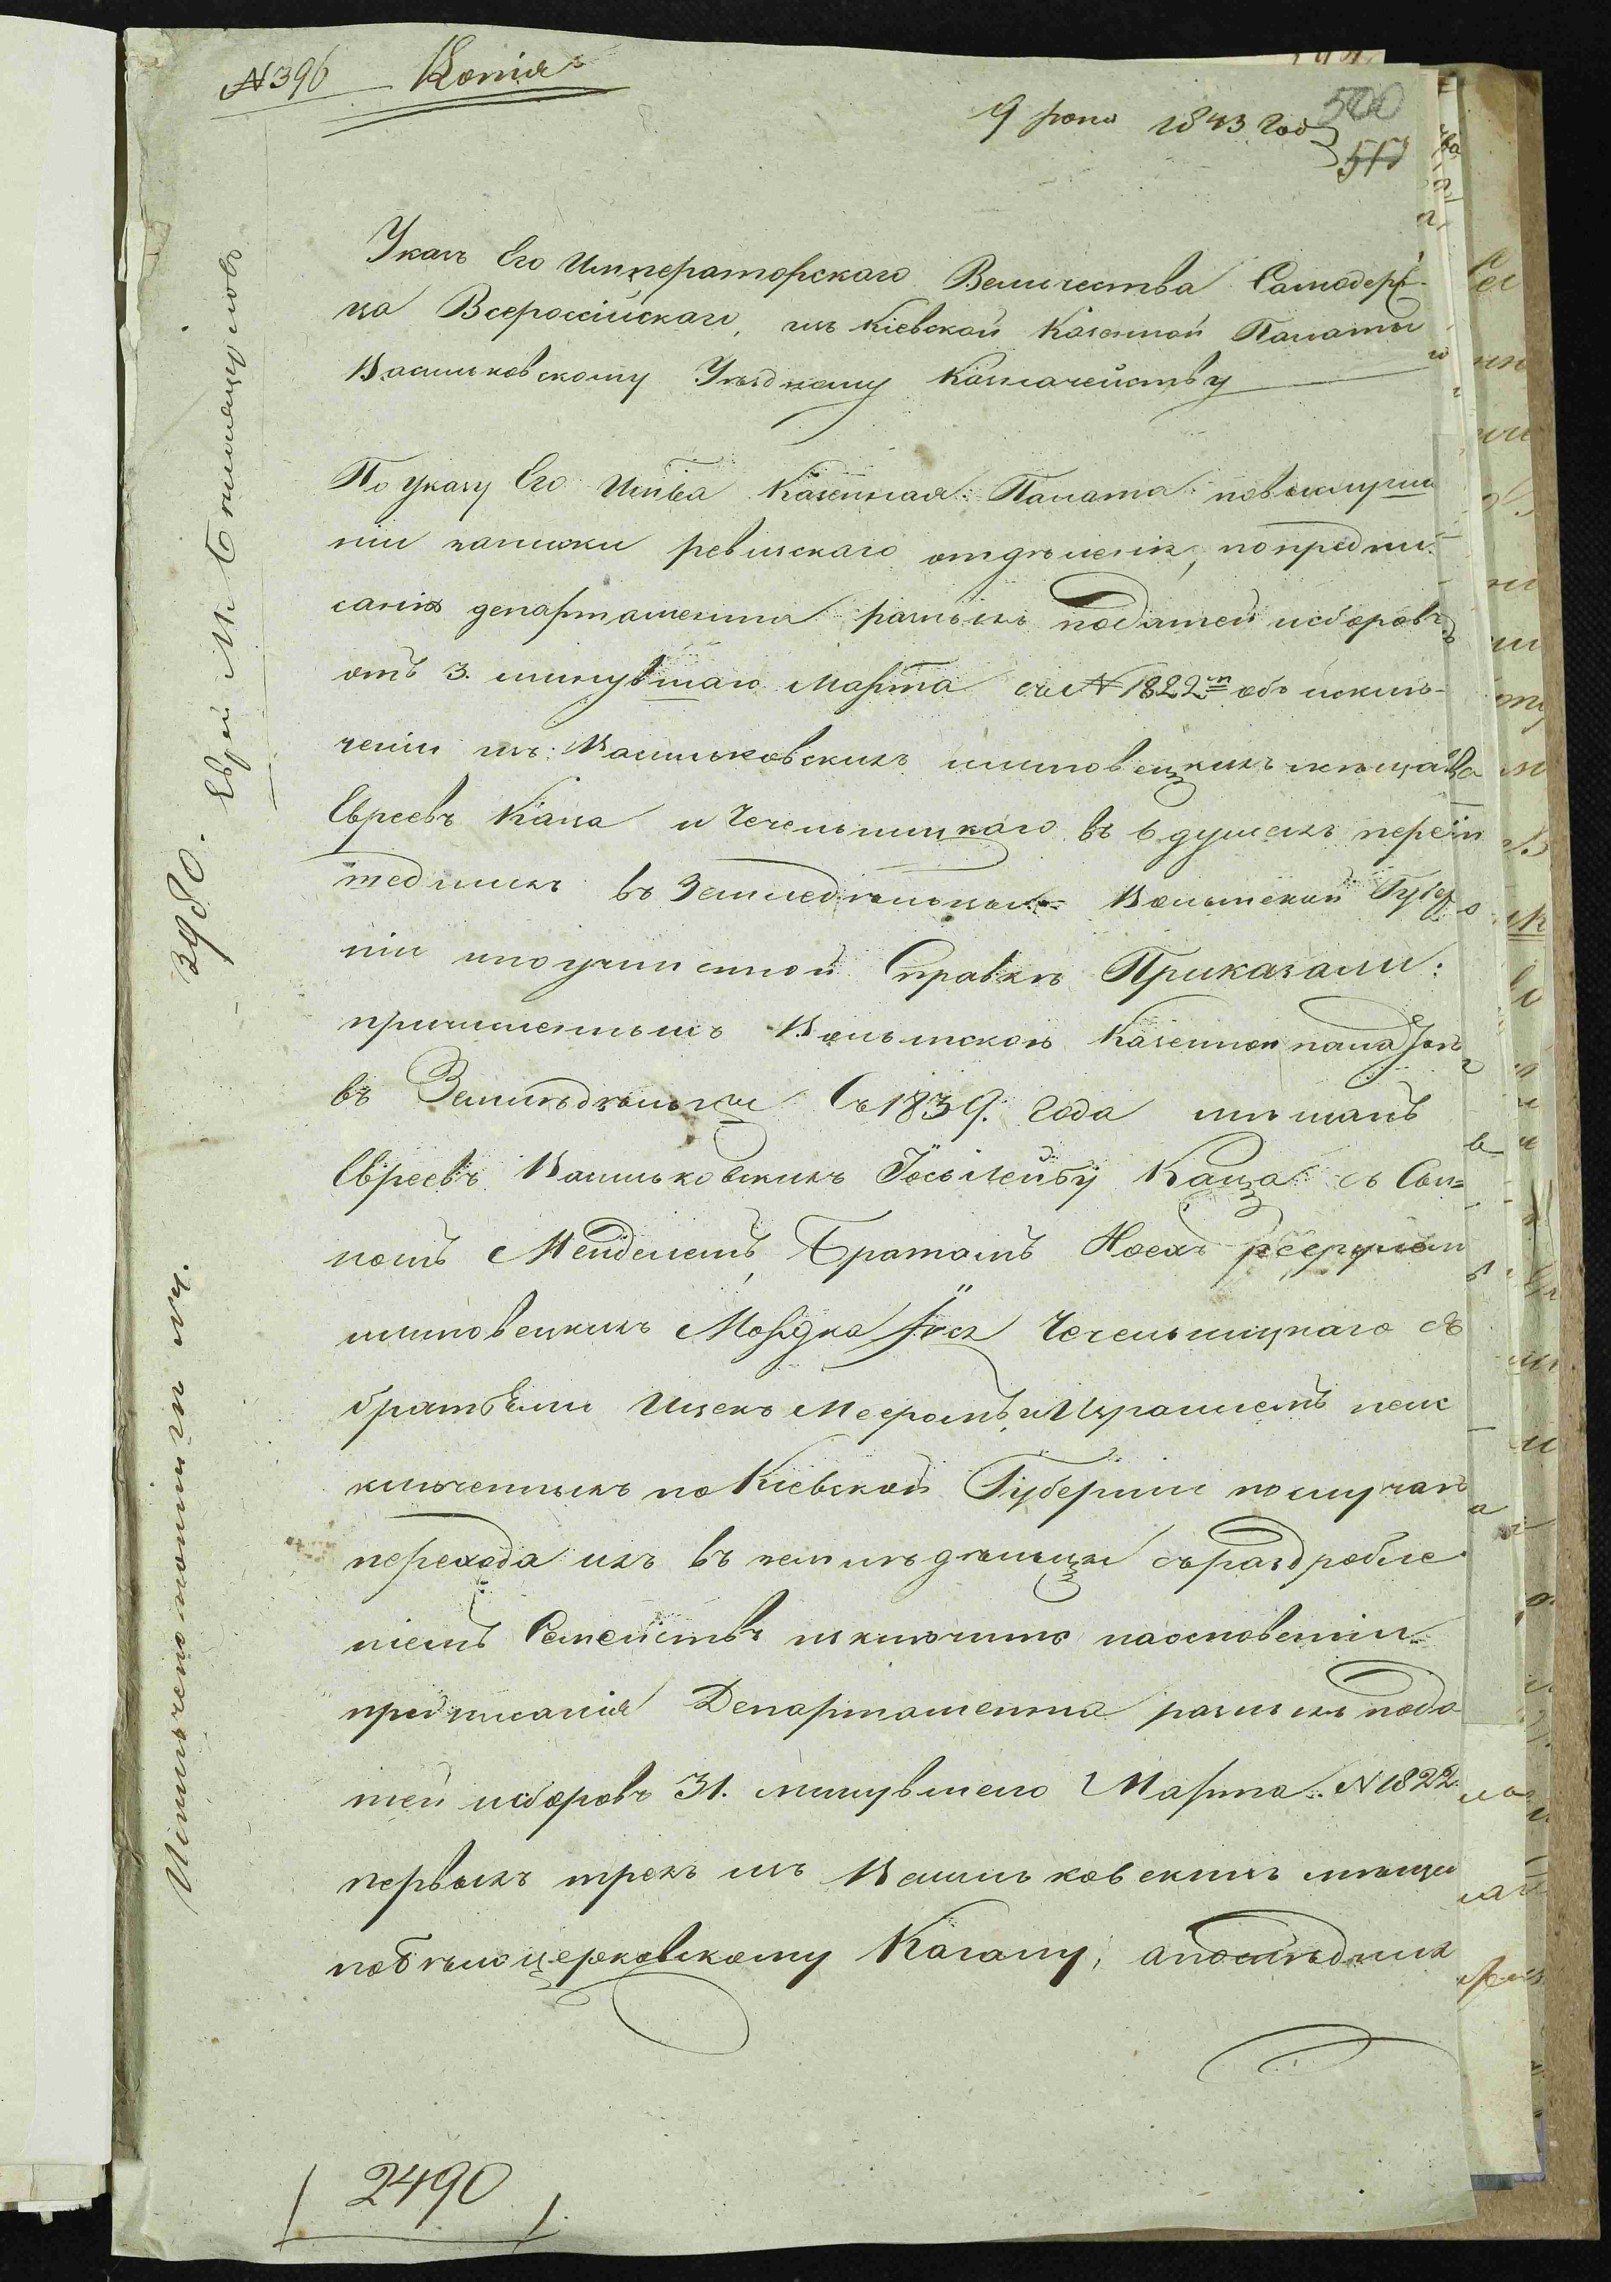 № 396 Копія
9 Іюня 1843 год
500
517
Указъ Его Императорскаго Величества Самодерж-
ца Всероссійскаго, изъ Кіевской Казенной Палаты
Васильковскому Уѣздному Казначейству
По указу Его Имп̃ва Казенная Палата повыслуша
ніи записки ревизскаго отдѣленія, попредпи-
санію департамента разныхъ податей исборовъ
отъ 3. минувшаго Марта за № 1822 объ исклю-
ченіи изъ Васильковскихъ илиповецкихъ мѣщанъ
Евреевъ Каца и Чечельницкаго въ 6 душахъ переш
тедшихъ въ Земледѣльцы Волынской Губер
ніи ипоучиненной Справкѣ Приказали:
причисленныхъ Волынскою Казенною палатою
въ Земледѣльцы съ 1839. года мѣщанъ
Евреевъ Васильковскихъ Іось Лейбу Каца съ Сы-
номъ Менделемъ, Братомъ Носеъ
илиповецкихъ Мордка Іося Чечельницкаго съ
братьями Ицекъ Мееромъ, иИзраилемъ неис
ключенныхъ по Кіевской Губерніи послучаю
перехода ихъ въ земледѣльцы съраздробле
ніемъ Семействъ исключить наосновеніи
предписанія Департамента разныхъ пода
тей исборовъ 31. минувшего Марта № 1822
первыхъ трехъ изъ Васильковскихъ мѣщан
поБѣлоцерковскому Кагалу, апослѣдних
2490
3980. Еврей М: Бѣлилицеловъ
Исключено